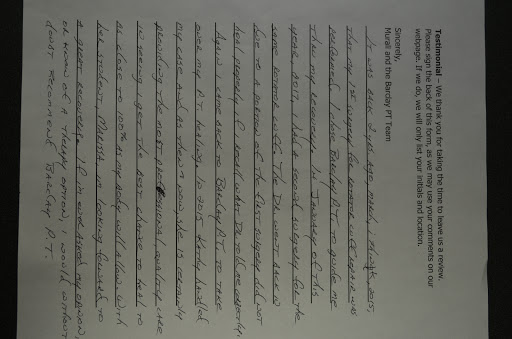 Testimonial – We thank you for taking the time to leave us a review.
Please sign the back of this form, as we may use your comments on our
webpage. If we do, we will only list your initials and location.
Sincerely,
Murali and the Barclay PT Team
It was back 2 yrs ago March, I think, 2015,
that my 1st surgery for rotator cuff repair was
performed. I chose Barclay PT to guide me
thru my recovery. In January of this
year, 2017, I had a second surgery for the
same rotator cuff. The Dr went back in
due to a portion of the first surgery did not
heal properly. I recall what Dr told me exactly.
Again came back to Barclay PT to take
over my P.T. healing. In 2015 Kathy handled
my case and as then is now, she is certainly
providing the most quality care
in seeing I get the best chance to heal to
as close to 100% as my body will allow. With
her student, Marisa I'm looking forward to
a great recovery. If I'm ever asked my opinion
or know of a therapy option, I would without
doubt recommend Barclay P.T.